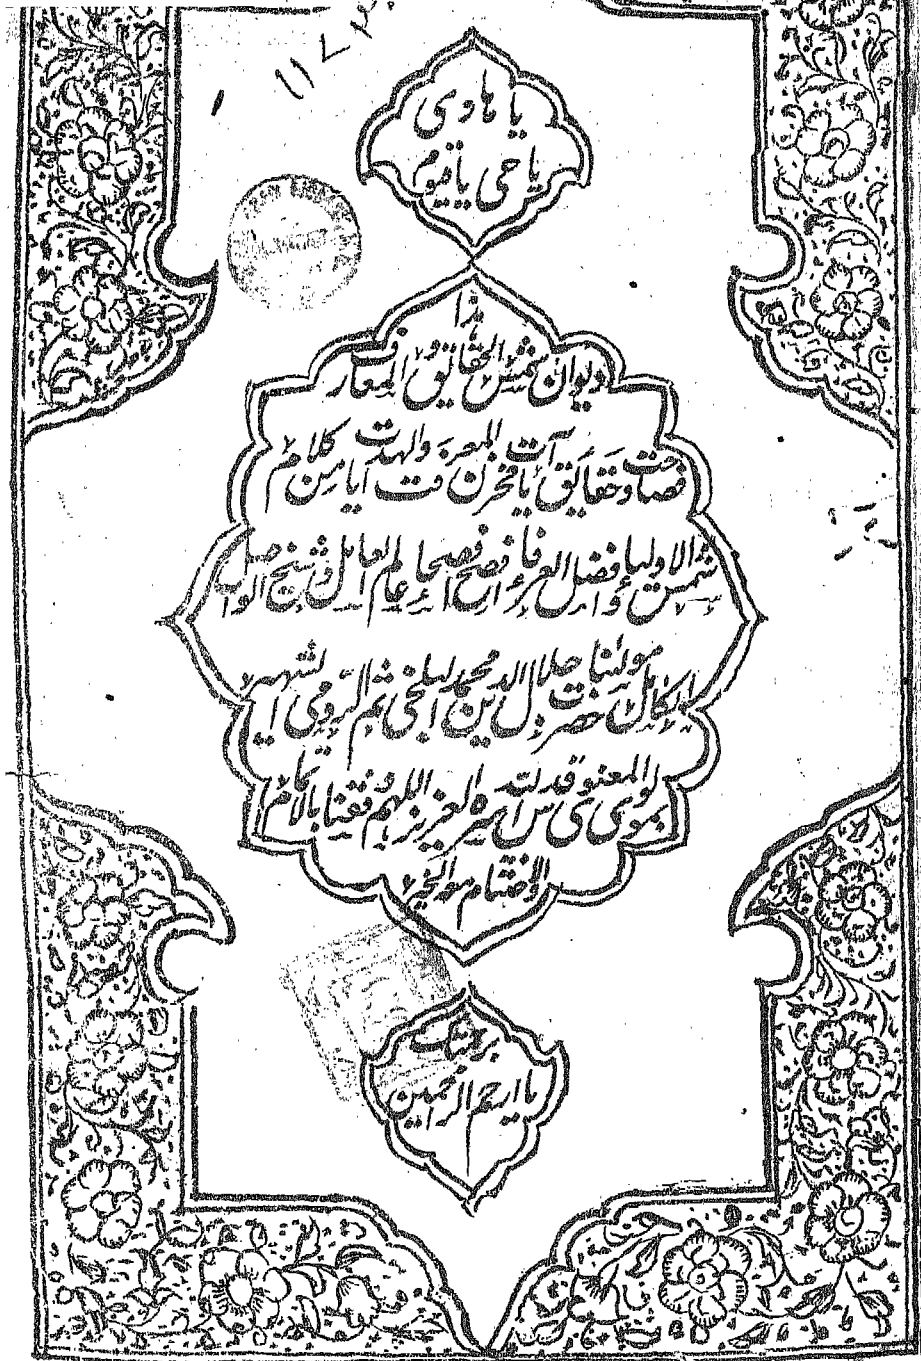 یا هادی
یا حی یا قیوم
هذا
دیوان شمس الحقائق و المعارف
فصاحت و حقایق آیات مخزن المعرفت والهدایت من کلام
شمس الاولیاء و افضل العرفاء افصح فصحاء عالم العامل و شیخ الواصل
الکامل حضرت مولینا جلال الدین محمد البلخی ثم الرومی الشهیر
بمولوی المعنوی قدس الله سره العزیز اللهم وفقنا بالاتمام
و الاختتام مع الخیر
برحمتک
یا ارحم الراحمین